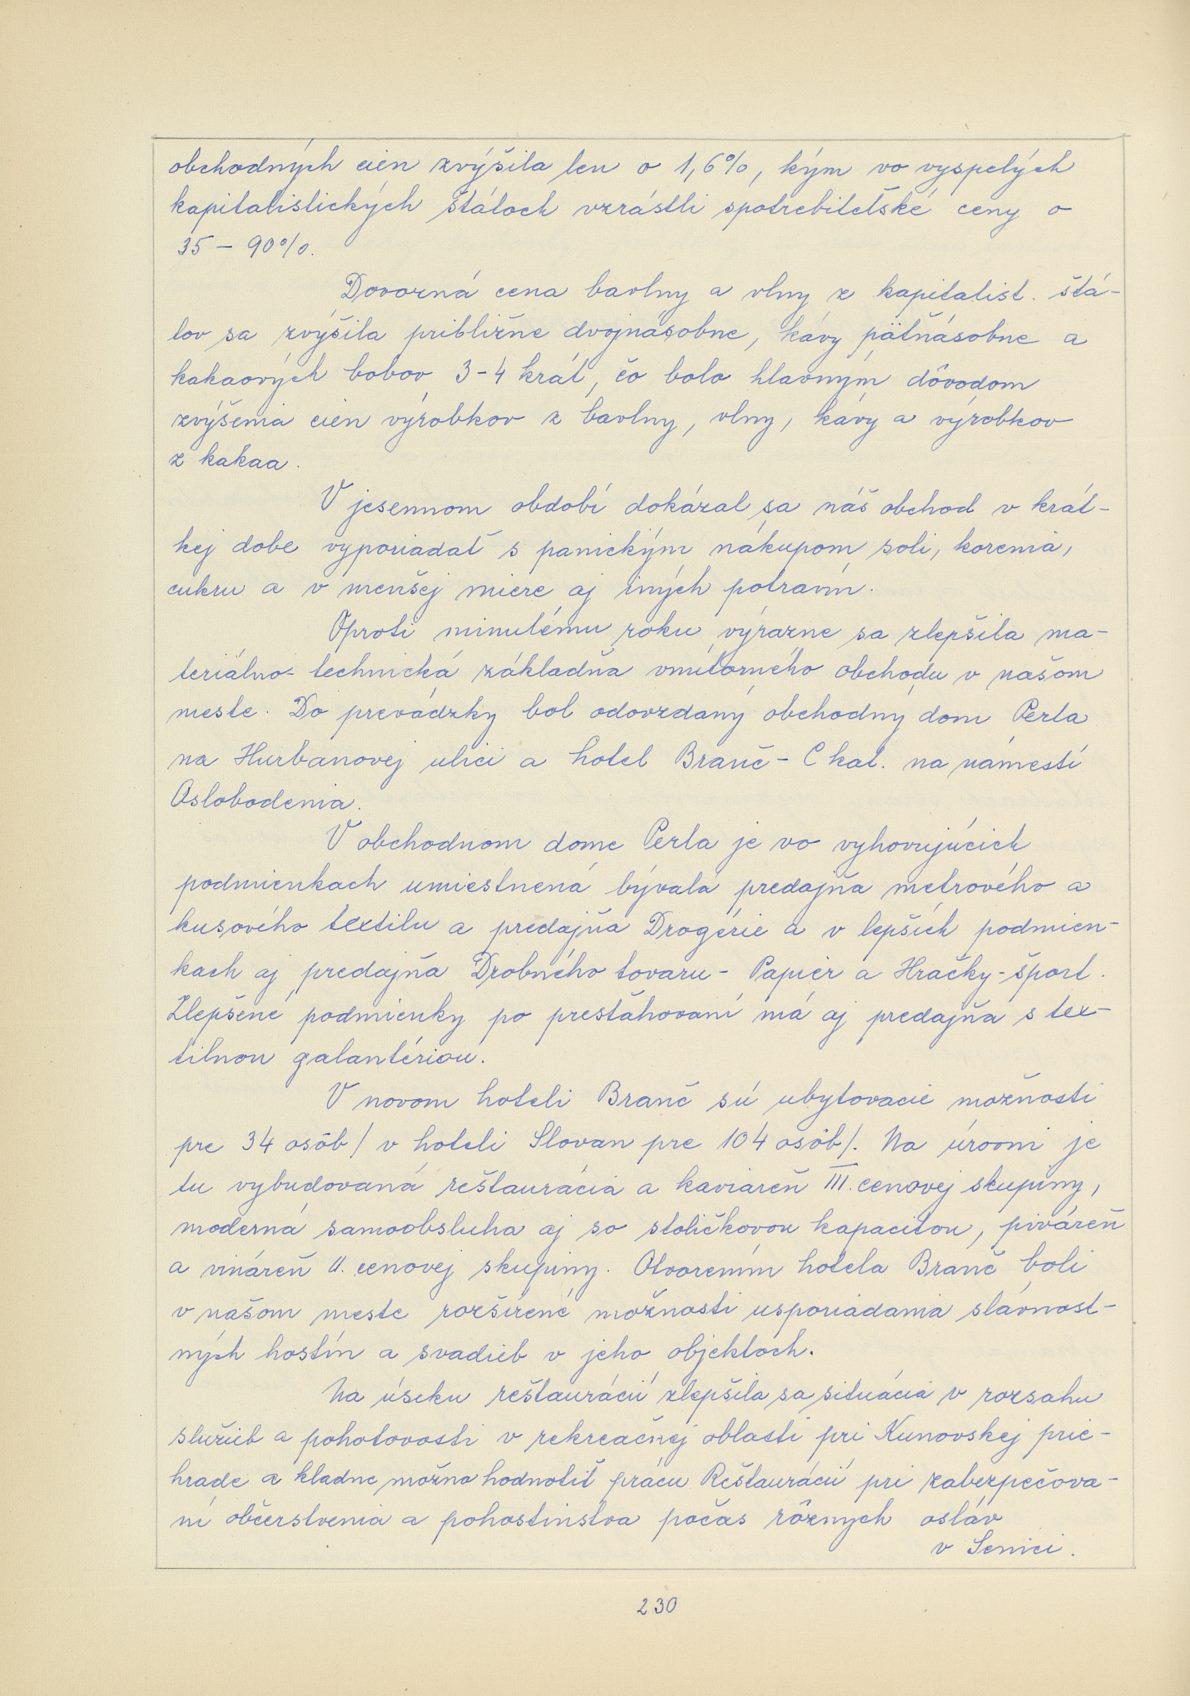 obchodných cien zvýšila len o 1,6%, kým vo vyspelých
kapitalistických štátoch vzrástli spotrebiteľské ceny o
35 - 90%.
Dovozná cena bavlny a vlny z kapitalist. štá-
tov sa zvýšila približne dvojnásobne, kávy päťnásobne a
kakaových bobov 3-4 krát, čo bolo hlavným dôvodom
zvýšenia cien výrobkov z bavlny, vlny, kávy a výrobkov
z kakaa.
V jesennom období dokázal sa náš obchod v krát-
kej dobe vyporiadať s panickým nákupom soli, korenia,
cukru a v menšej miere aj iných potravín.
Oproti minulému roku výrazne sa zlepšila ma-
teriálno-technická základňa vnútorného obchodu v našom
meste. Do prevádzky bol odovzdaný obchodný dom Perla
na Hurbanovej ulici a hotel Branč - C kat. na námestí
Oslobodenia.
V obchodnom dome Perla je vo vyhovujúcich
podmienkach umiestnená bývalá predajňa metrového a
kusového textilu a predajňa Drogérie a v lepších podmien-
kach aj predajňa Drobného tovaru - Papier a Hračky-šport.
Zlepšené podmienky po presťahovaní má aj predajňa s tex-
tilnou galantériou.
V novom hoteli Branč sú ubytovacie možnosti
pre 34 osôb / v hoteli Slovan pre 104 osôb/. Na úrovni je
tu vybudovaná reštaurácia a kaviareň III. cenovej skupiny,
moderná samoobsluha aj so stoličkovou kapacitou, piváreň
a vináreň II. cenovej skupiny. Otvorením hotela Branč boli
v našom meste rozšírené možnosti usporiadania slávnost-
ných hostín a svadieb v jeho objektoch.
Na úseku reštaurácií zlepšila sa situácia v rozsahu
služieb a pohotovosti v rekreačnej oblasti pri Kunovskej prie-
hrade a kladne možno hodnotiť prácu Reštaurácií pri zabezpečova-
ní občerstvenia a pohostinstva počas rôznych osláv
v Senici.
230